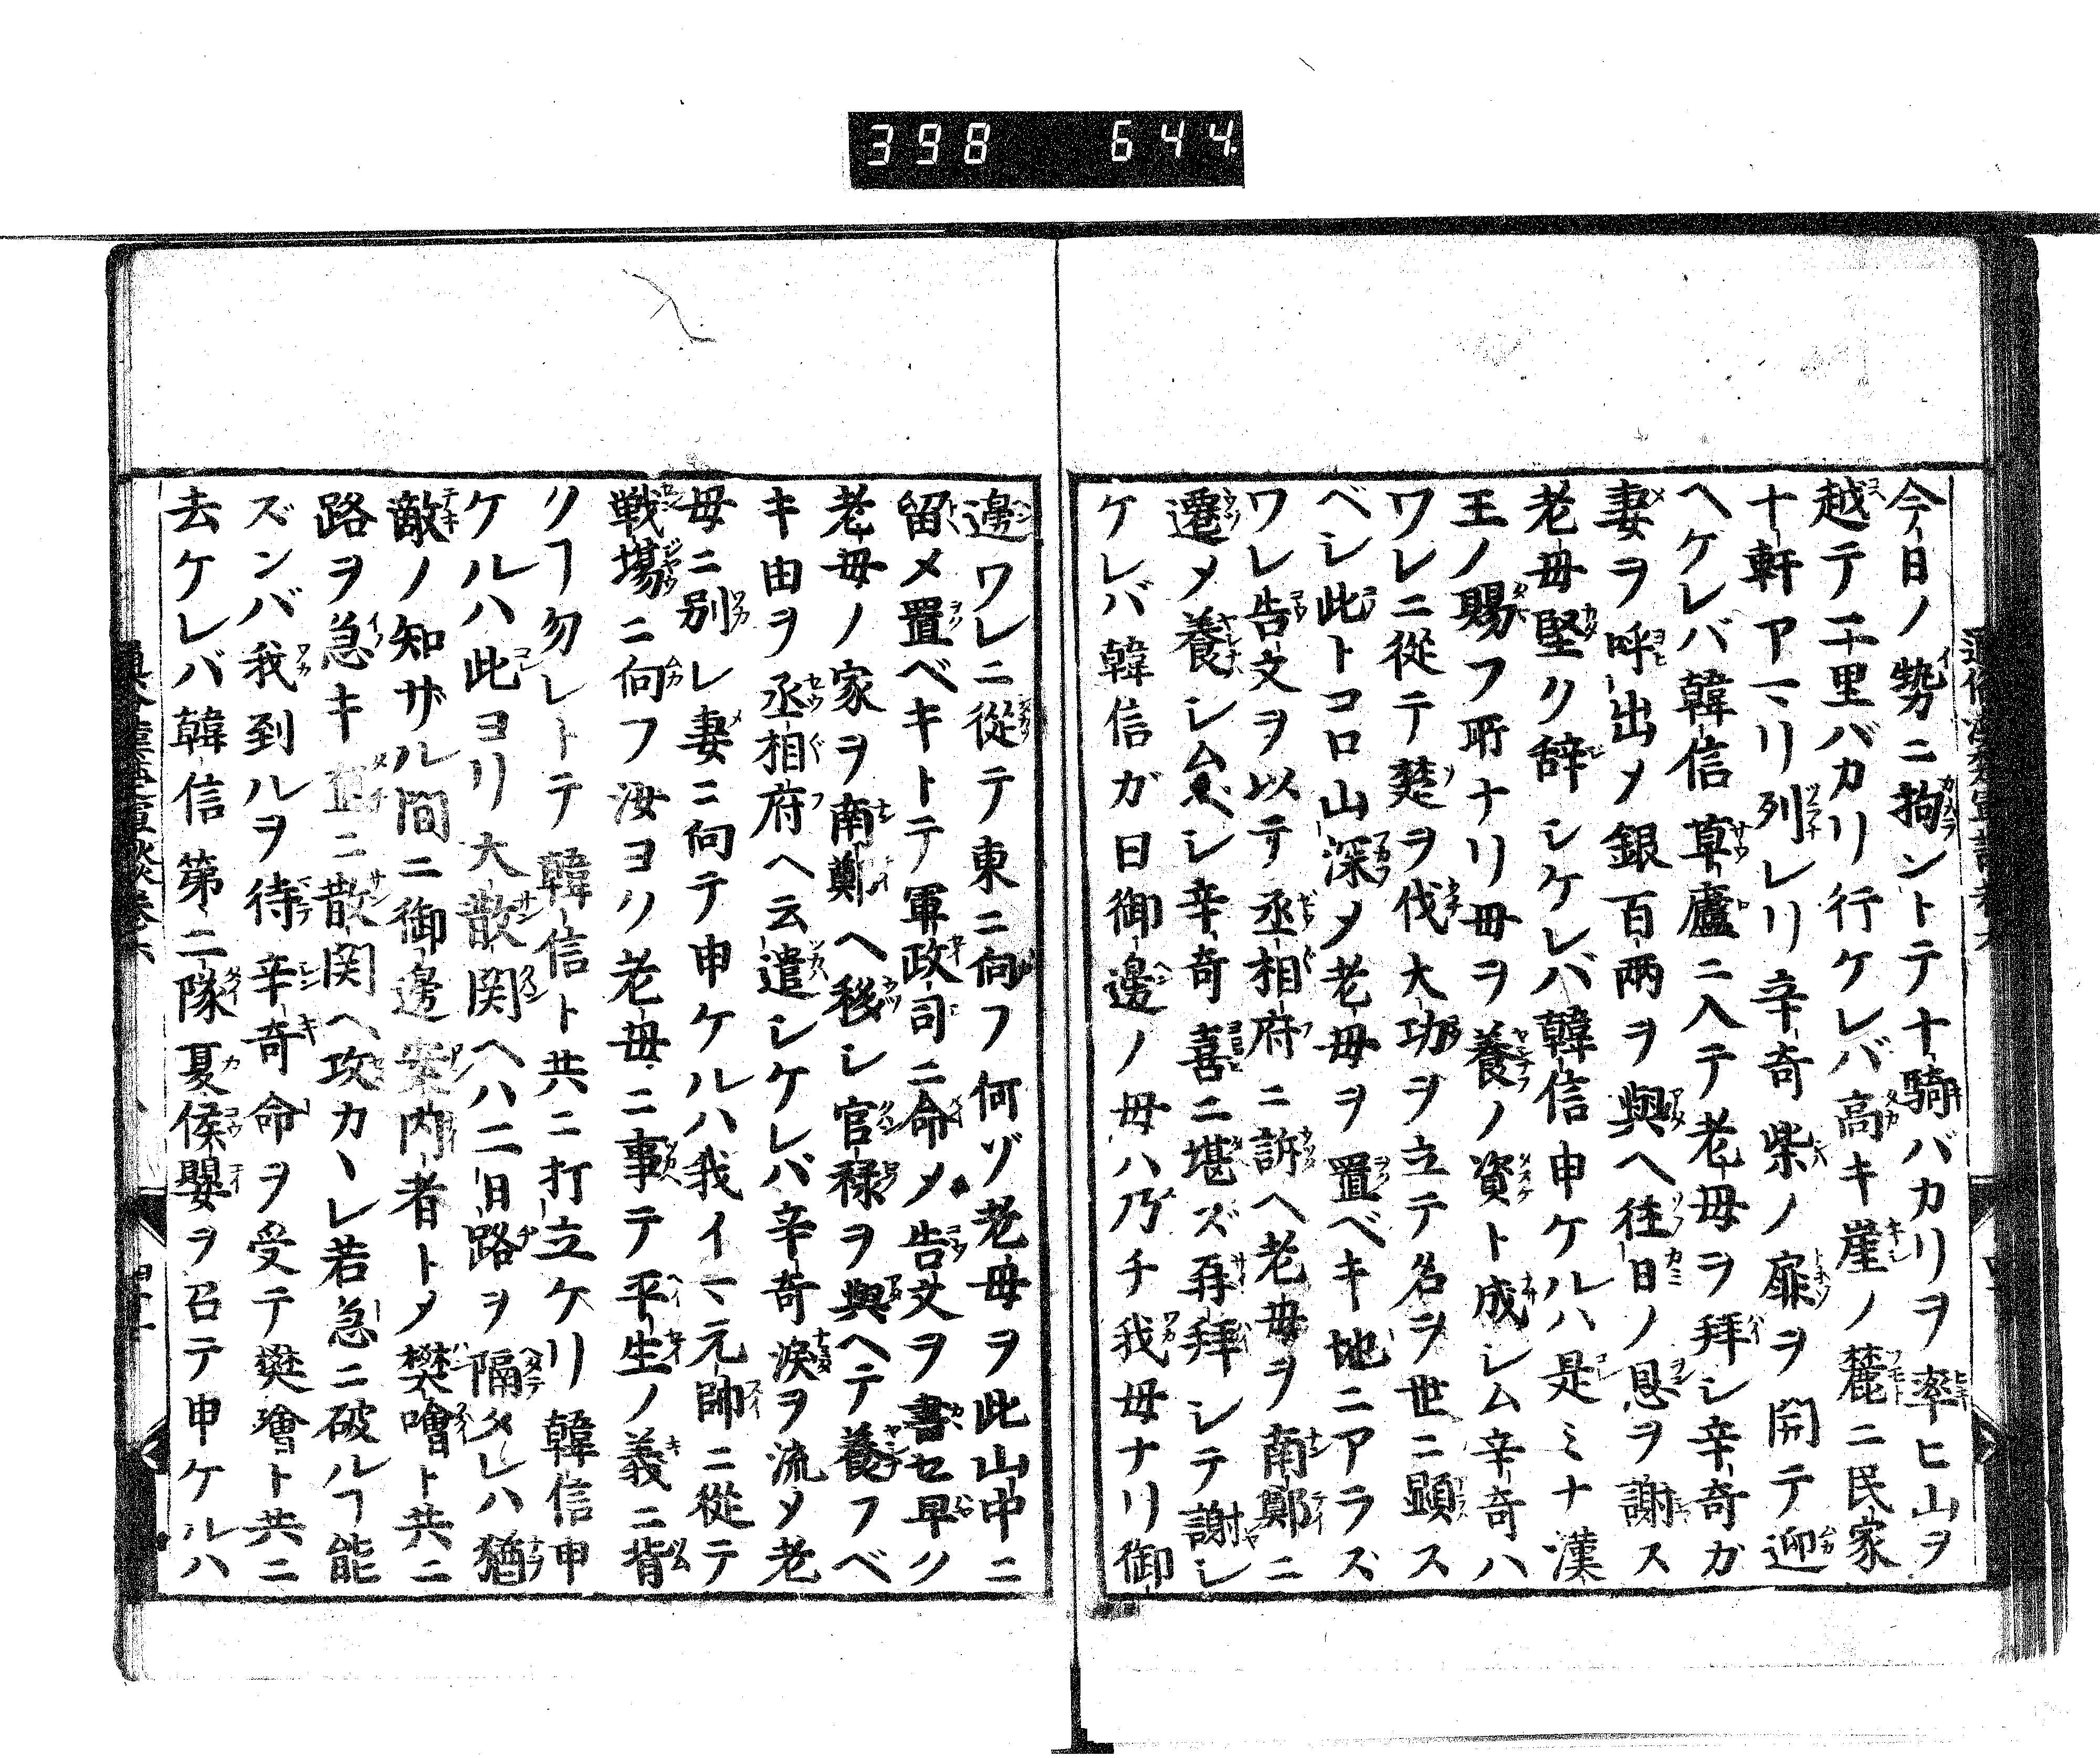 398 644
今日ノ勢ニ拘ントテ十騎バカリヲ率ヒ山ヲ
越テ二三里バカリ行ケレバ高キ崖ノ麓ニ民家
十軒アマリ列レリ辛奇柴ノ扉ヲ開テ迎
ヘケレバ韓信草廬ニ入テ老母ヲ拜シ辛奇ガ
妻ヲ呼出メ銀百兩ヲ與ヘ徃日ノ恩ヲ謝ス
老母堅ク辞シケレバ韓信申ケルハ是ミナ漢
王ノ賜フ所ナリ母ヲ養ノ資ト成シム辛奇ハ
ワレニ從テ楚ヲ伐大功ヲ立テ名ヲ世ニ顕ス
ベシ此トコロ山深メ老母ヲ置ベキ地ニアラズ
ワレ告文ヲ以テ丞相府ニ訴ヘ老母ヲ南鄭ニ
遷メ養シムベシ辛奇喜ニ堪ズ再拜シテ謝シ
ケレバ韓信ガ曰御邊ノ母ハ乃チ我母ナリ御
邊ワレニ從テ東ニ向フ何ゾ老母ヲ此山中ニ
留メ置ベキトテ軍政司ニ命メ告文ヲ書セ早ク
老母ノ家ヲ南鄭ヘ移シ官禄ヲ與ヘテ養フベ
キ由ヲ丞相府ヘ云遣シケレバ辛奇淚ヲ流メ老
母ニ別レ妻ニ向テ申ケルハ我イマ元帥ニ從テ
戦場ニ向フ汝ヨク老母ニ事テ平生ノ義ニ背
クヿ勿レトテ韓信ト共ニ打立ケリ韓信申
ケルハ此ヨリ大散関ヘハ二日路ヲ隔メレハ猶
敵ノ知ザル間ニ御邊案内者トメ樊噲ト共ニ
路ヲ急キ直ニ散関ヘ攻カヽレ若急ニ破ルヿ能
ズンバ我到ルヲ待辛奇命ヲ受テ樊噲ト共ニ
去ケレバ韓信第二隊夏侯嬰ヲ召テ申ケルハ